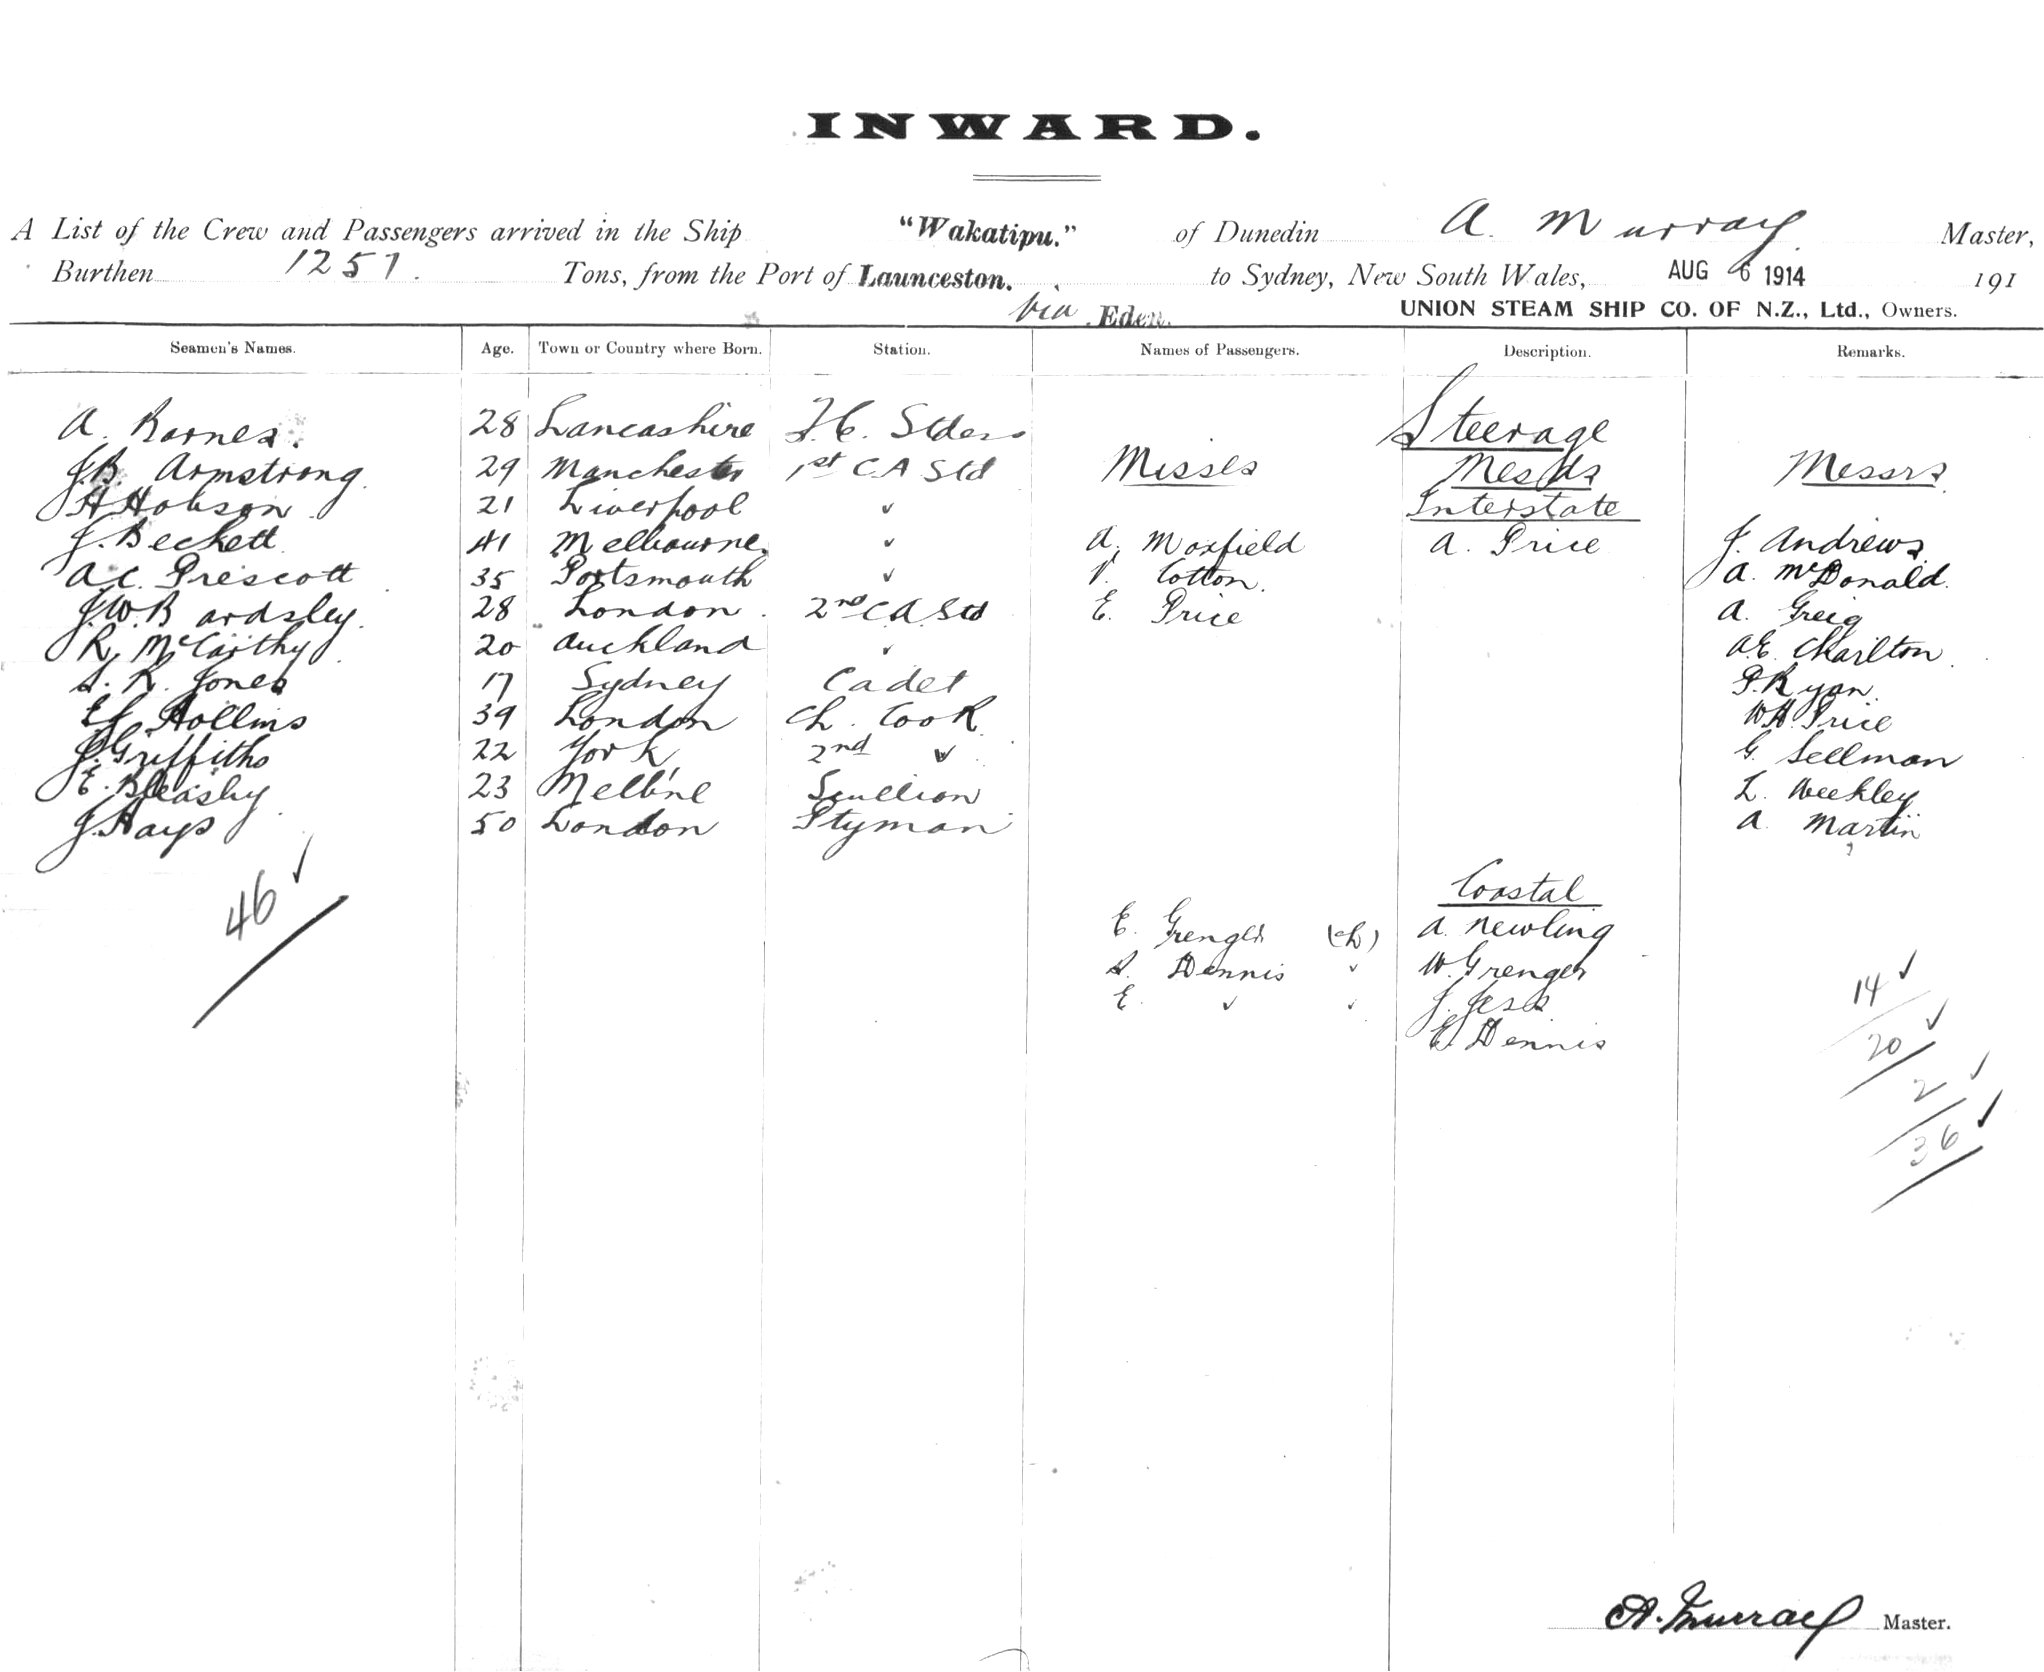 INWARD.
A List of the Crew and Passengers arrived in the Ship "Wakatipu." of Dunedin A. Murray Master,
Burthen 1257. Tons, from the Port of Launceston. to Sydney, New South Wales, AUG 6 1914 191
via Eden. UNION STEAM SHIP CO. OF N.Z., Ltd., Owners.
Seamen's Names. Age. Town or Country where Born. Station. Names of Passengers. Description. Remarks.
A. Barnes. 28 Lancashire Stdess Steerage
J.B. Armstrong. 29 Manchester 1st C A Std Misses Mesds Messrs
H Hobson 21 Liverpool " Interstate
J. Beckett 41 Melbourne " A. Moxfield A. Price J. Andrews
A.C. Prescott 35 Portsmouth " Cotton. A. McDonald.
J.W. Bardsley. 28 London. 2nd C.A. Std E. Price A. Greig
R. McCarthy 20 Auckland " A.E. Charlton
S. R. Jones 17 Sydney Cadet P. Ryan.
Hollins 39 London Ch. Cook W.H. Price
J. Griffiths 22 York 2nd " G. Sellman
E. Bleasby 23 Melb'ne Scullion L. Weekley
J. Hays 50 London Ptyman A. Martin
46
Coastal
E. Grenger (ch) A. Newling
S. Dennis " W. Grenger
E. " " J.
E. Dennis
14
20
2
36
A. Murray Master.